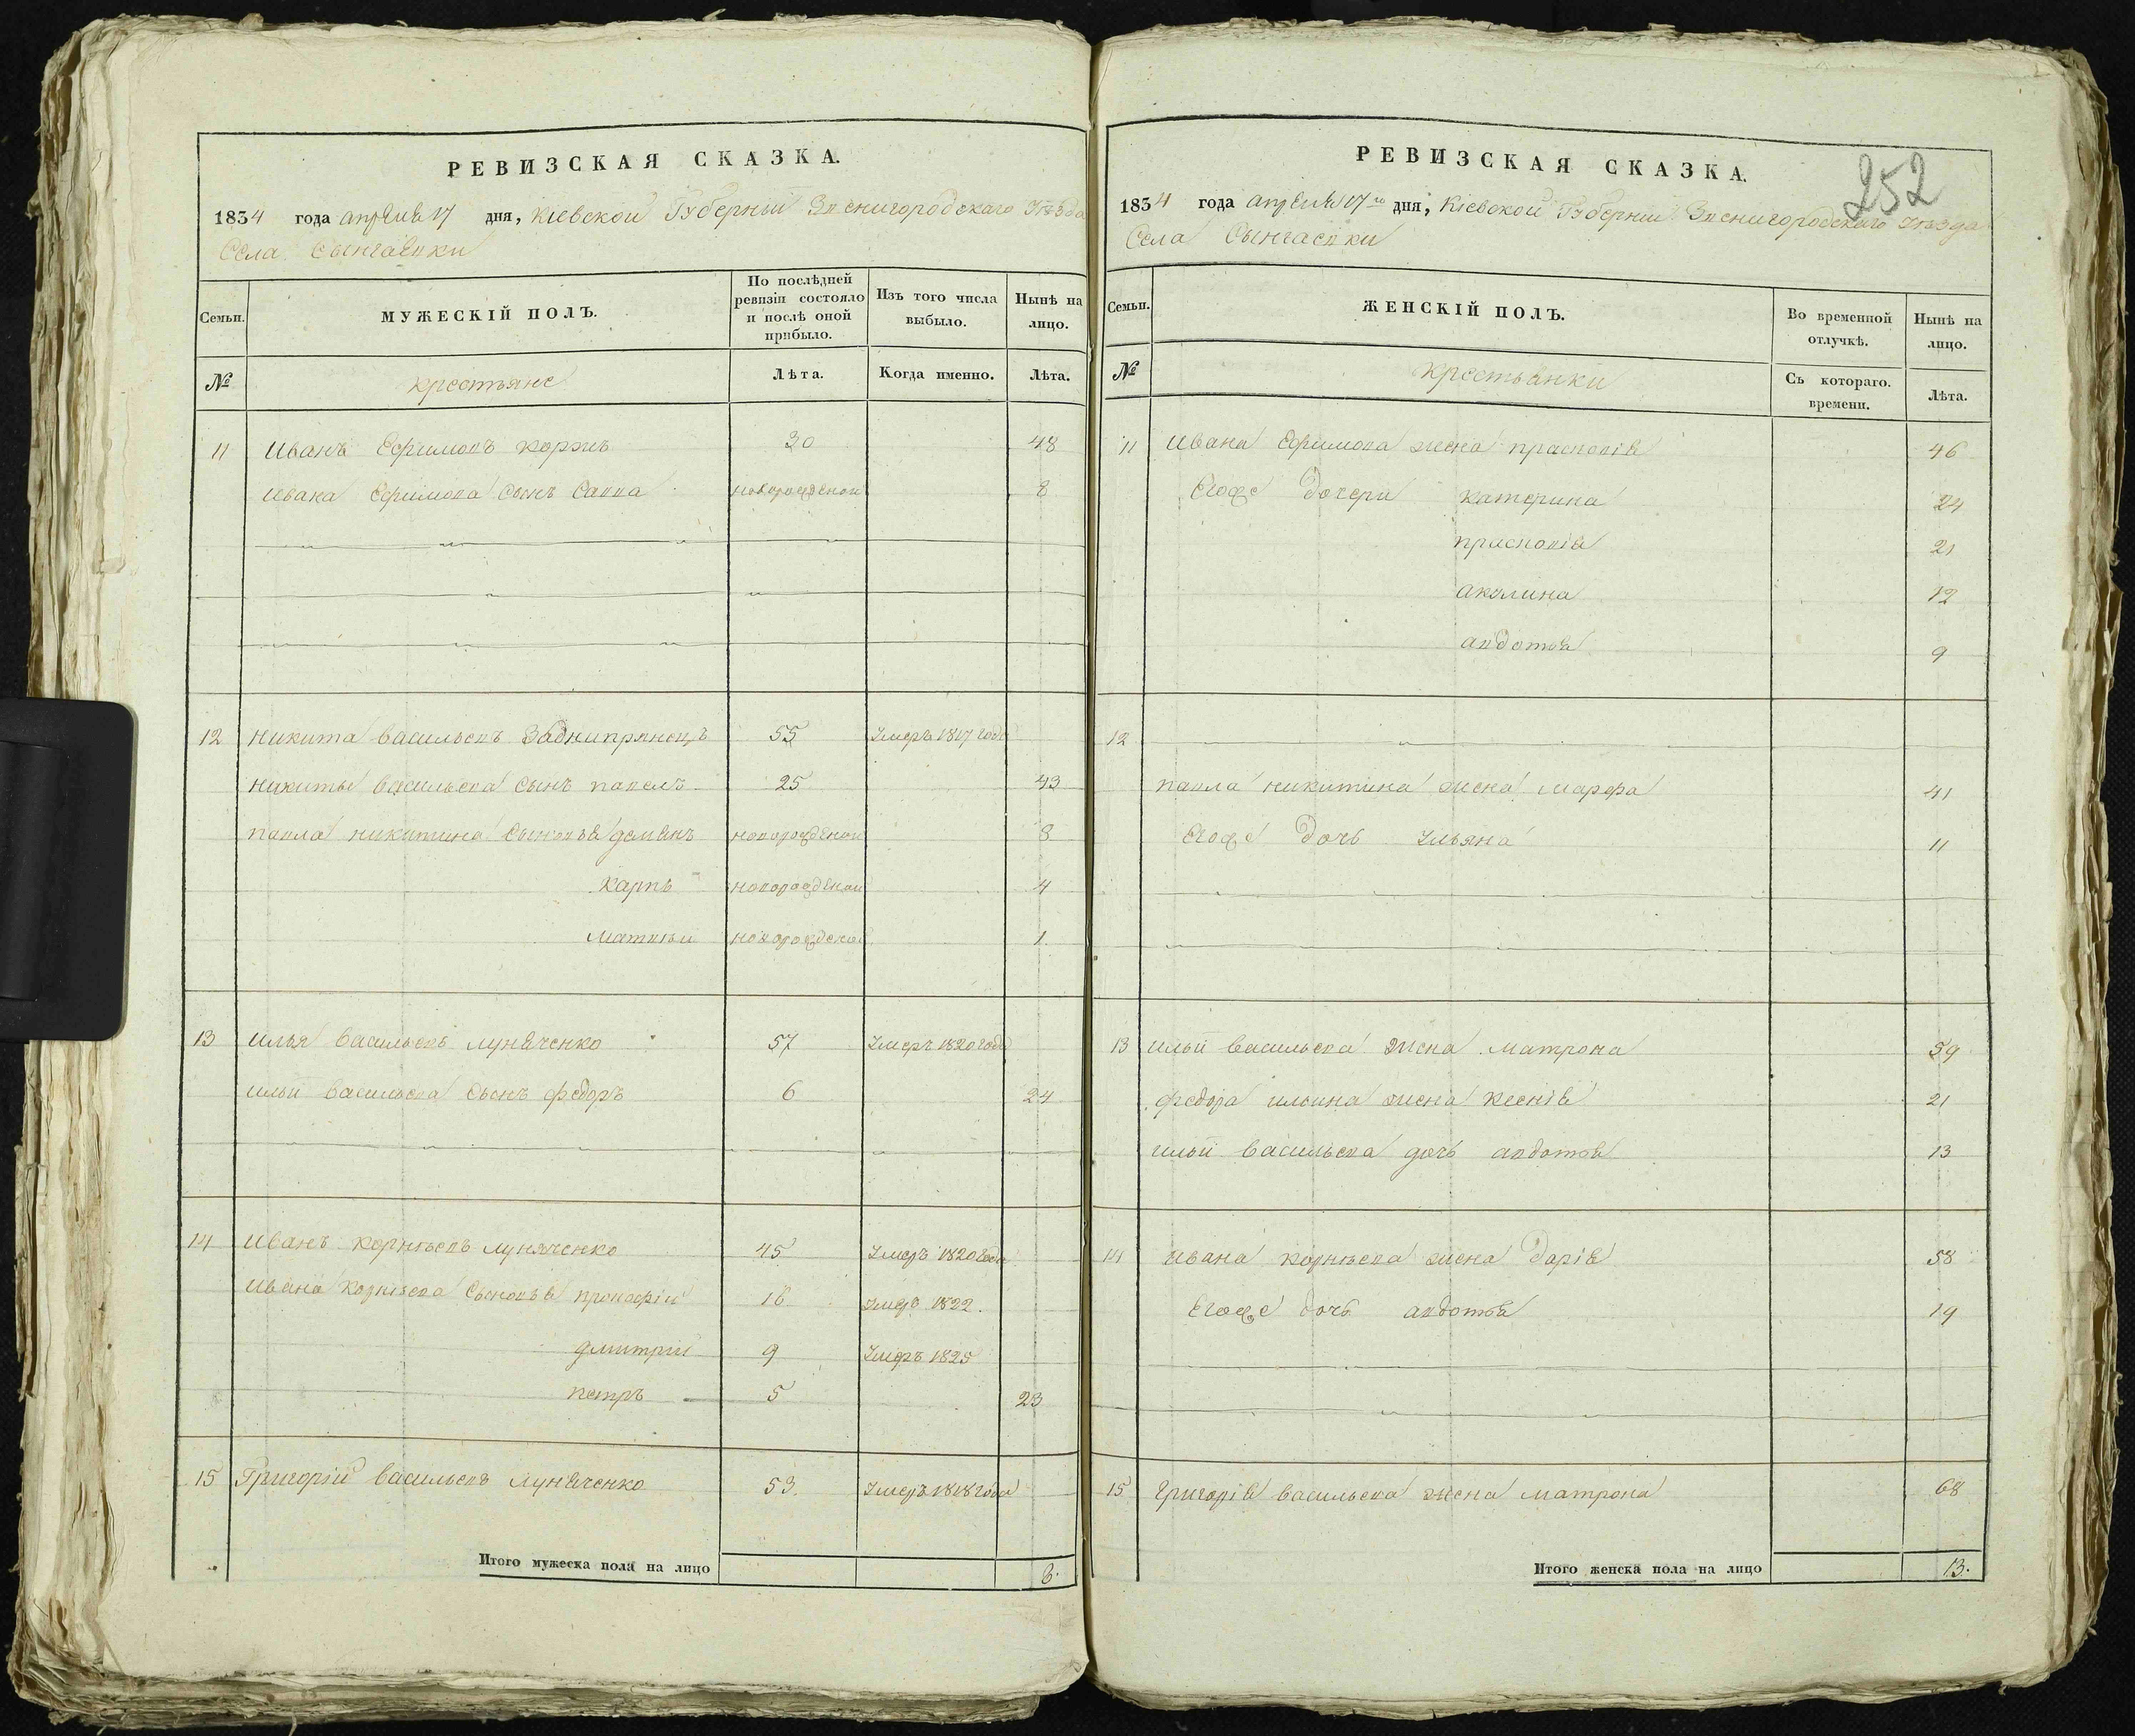 РЕВИЗСКАЯ СКАЗКА.
1834 года апреля 17 дня, Киевской Губернии Звенигородского Уезда
Села
Семьи.
МУЖЕСКІЙ ПОЛЪ.
По послѣдней ревизіи состояло и послѣ оной прибыло.
Изъ того числа выбыло.
Нынѣ на лицо.
№
крестьяне
Лѣта.
Когда именно.
Лѣта.
11 Иванъ Ефимовъ Коржъ 30 48
Ивана Ефимова Сынъ Савва новорожденой 8
12 Никита Васильевъ Заднипрянецъ 55 Умеръ 1817 года
Никиты Васильева Сынъ Павелъ 25 43
Павла Никитина Сыновья Демянъ новорожденой 8
Карпъ новорожденой 4
Матвѣй новорожденой 1
13 Илья Васильевъ Луняченко 57 Умеръ 1820 года
Ильи Васильева Сынъ Федоръ 6 24
14 Иванъ Корнѣевъ Луняченко 45 Умеръ 1820 года
Ивана Корнѣева Сыновья Прокофій 16 Умеръ 1822.
Дмитрій 9 Умеръ 1825
Петръ 5 23
15 Григорій Васильевъ Луняченко 53. Умеръ 1818 года
Итого мужеска пола на лицо 8.
252
РЕВИЗСКАЯ СКАЗКА.
1834 года апреля 17го дня, Кіевской Губерніи Звенигородского Уезда
Села
Семьи.
ЖЕНСКІЙ ПОЛЪ.
Во временной отлучкѣ.
Нынѣ на лицо.
№
крестьянки
Съ котораго. времени.
Лѣта.
11 Ивана Ефимова жена Прасковія 46
Егоже Дочери Катерина 24
Прасковія 21
Акулина 12
Авдотья 9
12
Павла Никитина жена Марфа 41
Егоже Дочь Ульяна 11
13 Ильи Васильева жена Матрона 59
Федора Ильина жена Ксенія 21
Ильи Васильева дочь Авдотья 13
14 Ивана Корнѣева жена Дарія 58
Егоже Дочь Авдотья 19
15 Григорія Васильева жена Матрона 68
Итого женска пола на лицо 13.